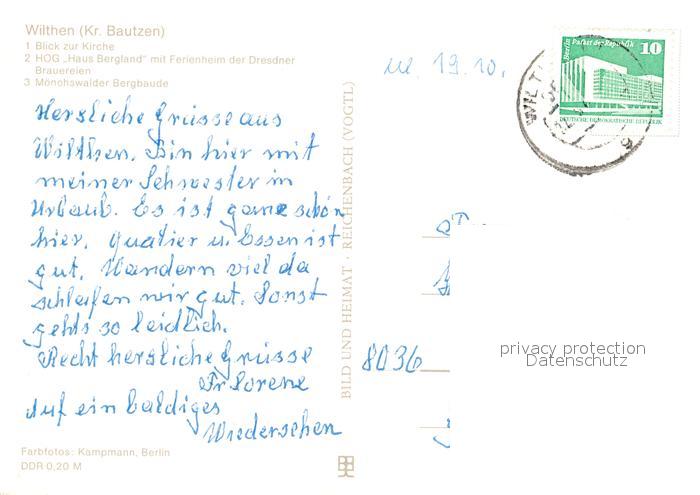 Wilthen (Kr. Bautzen)
1 Blick zur Kirche
2 HOG „Haus Bergland“ mit Ferienheim der Dresdner
Brauereien
3 Mönchswalder Bergbaude
Herzliche Grüsse aus
Wilthen. Bin hier mit
meiner Schwester in
Urlaub. Es ist ganz schön
hier. Quatier u. Essen ist
gut. Wandern viel da
schlafen wir gut. Sonst
gehts so leidlich.
Recht herzliche Grüsse
Fr Lorenz
Auf ein baldiges
Wiedersehen
Farbfotos: Kampmann, Berlin
DDR 0,20 M
BILD UND HEIMAT · REICHENBACH (VOGTL)
19.10.
Berlin Palast der Republik 10
DEUTSCHE DEMOKRATISCHE REPUBLIK
WILTH
8036
privacy protection
Datenschutz